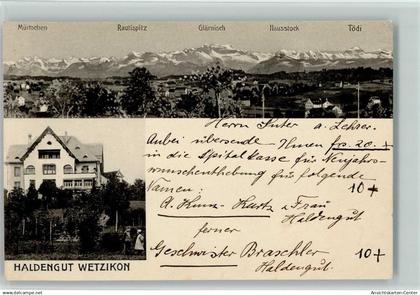 Mürtschen Rautispitz Glärnisch Hausstock Tödi
Herrn Suter a. Lehrer.
Anbei übersende Ihnen frs. 20.-
in die Spitalkasse für Neujahrs-
wunschenthebung für folgende
Namen: 10+
A. Kunz-Kurtz & Frau
Haldengut
ferner
Geschwister Braschler 10+
Haldengut.
HALDENGUT WETZIKON
Ansichtskarten-Center